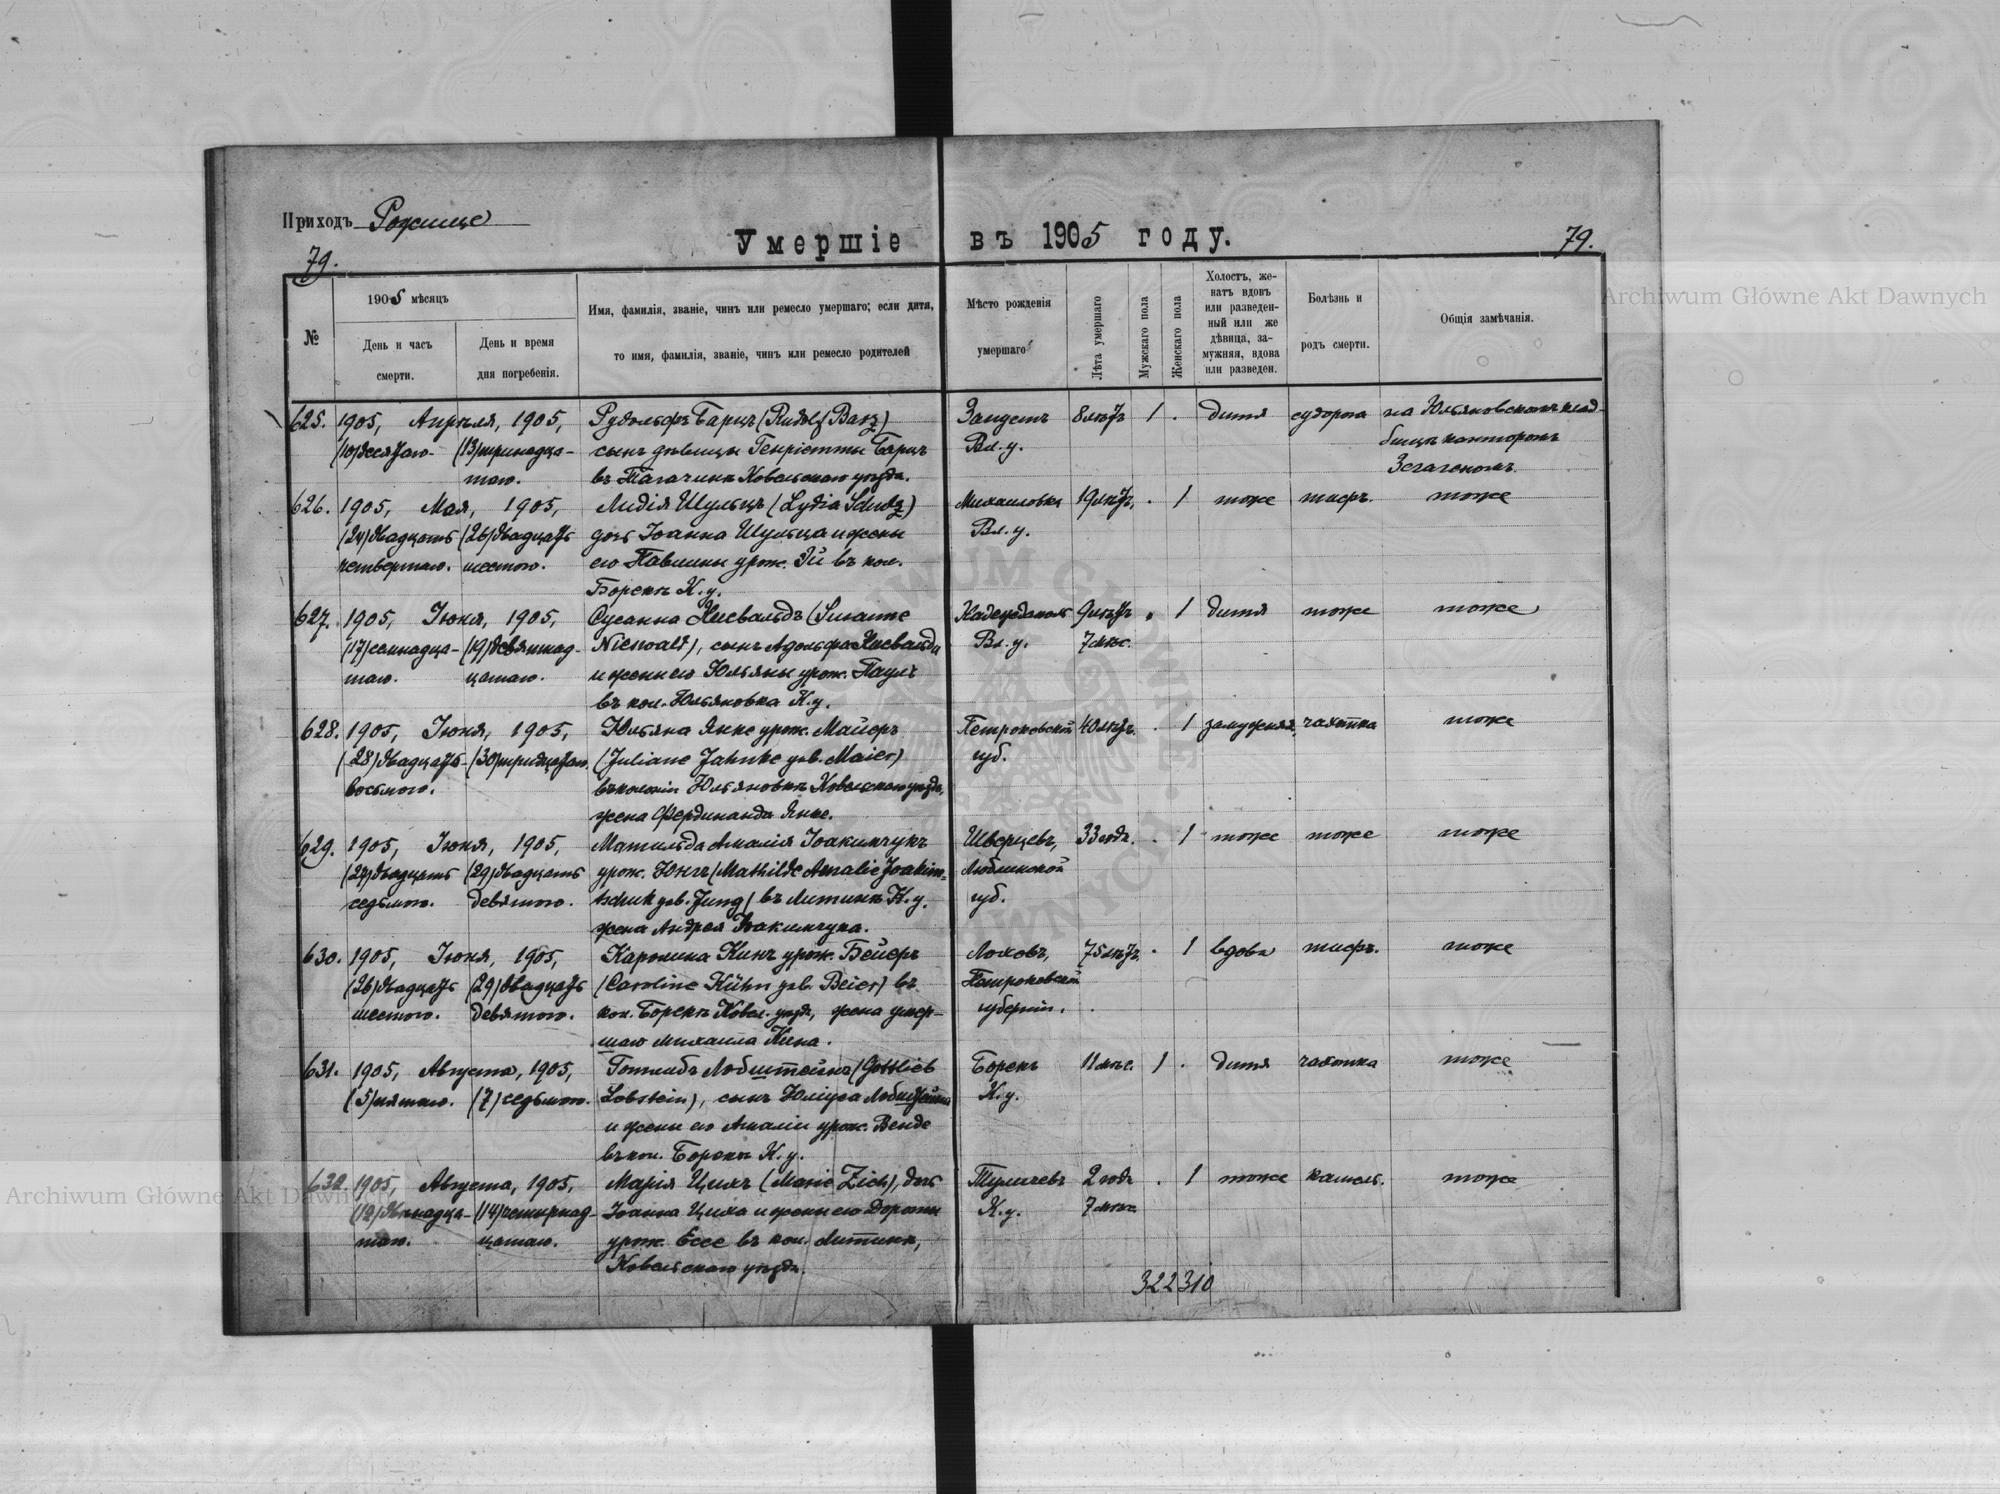 Приходъ Рожище
Умершіе въ 1905 году.
79.
79.
№
1905 мѣсяцъ
День и часъ смерти.
День и время дня погребенія.
Имя, фамилія, званіе, чинъ или ремесло умершаго; если дитя,
то имя, фамилія, званіе, чинъ или ремесло родителей
Мѣсто рожденія
умершаго
Лѣта умершаго
Мужскаго пола
Женскаго пола
Холостъ, же-
натъ вдовъ
или разведен-
ный или же
дѣвица, за-
мужняя, вдова
или разведен.
Болѣзнь и
родъ смерти.
Общія замѣчанія.
625. 1905, Апрѣля, 1905, Рудольфъ Барцъ (Rudolf Barz) 8 лѣтъ 1 . дитя судорога на Юльяновскомъ клад-
(10) десятаго (13) тринадца- сынъ дѣвицы Генріетты Барцъ Вл. у. бищѣ канторомъ
таго. въ Тагачинѣ Ковельскаго уѣзда.
626. 1905, Мая, 1905, Лидія Шульцъ (Lydia Schulz) Михаиловка 19 лѣтъ . 1 тоже тифъ. тоже
(24) двадцать (26) двадцать дочь Іоанна Шульца и жены Вл. у.
четвертаго. шестого. его Павлины урож. въ кол.
Борекъ К. у.
627. 1905, Іюня, 1905, Сусанна Нисвальдъ (Susanne 9 лѣтъ . 1 дитя тоже тоже
(17) семнадца- (19) девятнад- Nieswald), сынъ Адольфа Нисвальда Вл. у. 7 мѣс.
таго. цатаго. и жены его Юльяны урож. Паулъ
въ кол. Юльяновка К. у.
628. 1905, Іюня, 1905, Юльяна Янке урож. Майеръ Петроковской 40 лѣтъ. . 1 замужняя чахотка тоже
(28) двадцать (30) тридцатаго. (Juliane Jahnke geb. Maier) губ.
восьмого. въ колоніи Юльяновкѣ Ковельскаго уѣзда,
жена Фердинанда Янке.
629. 1905, Іюня, 1905, Матильда Амалія Іоакимчукъ 33 года. . 1 тоже тоже тоже
(27) двадцать (29) двадцать урож. Юнгъ (Mathilde Amalie Joakim- Люблинской
седьмого. девятого. tschuk geb. Jung) въ Литинѣ К. у. губ.
жена Андрея Іоакимчука.
630. 1905, Іюня, 1905, Каролина Кинъ урож. Бейеръ 75 лѣтъ . 1 вдова тифъ. тоже
(26) двадцать (29) двадцать (Caroline Kühn geb. Beier) въ Петроковской
шестого. девятого. кол. Борекъ Ковел. уѣзда, жена умер- губерніи.
шаго Михаила Кина.
631. 1905, Августа, 1905, Готлибъ Лобштейнъ (Gottlieb Борекъ 11 мѣс. 1 . дитя чахотка тоже
(5) пятаго. (7) седьмого. Lobstein), сынъ Юліуса Лобштейна К. у.
и жены его Амаліи урож. Венде
въ кол. Борекъ К. у.
632. 1905, Августа, 1905, Марія Цихъ (Marie Zich), дочь Туличевъ 2 года . 1 тоже кашель. тоже
(12) двѣнадца- (14) четырнад- Іоанна Циха и жены его Доротеи К. у. 7 мѣс.
таго. цатаго. урож. Ессе въ кол. Литинѣ,
Ковельскаго уѣзда.
322 310
Archiwum Główne Akt Dawnych
Archiwum Główne Akt Dawnych